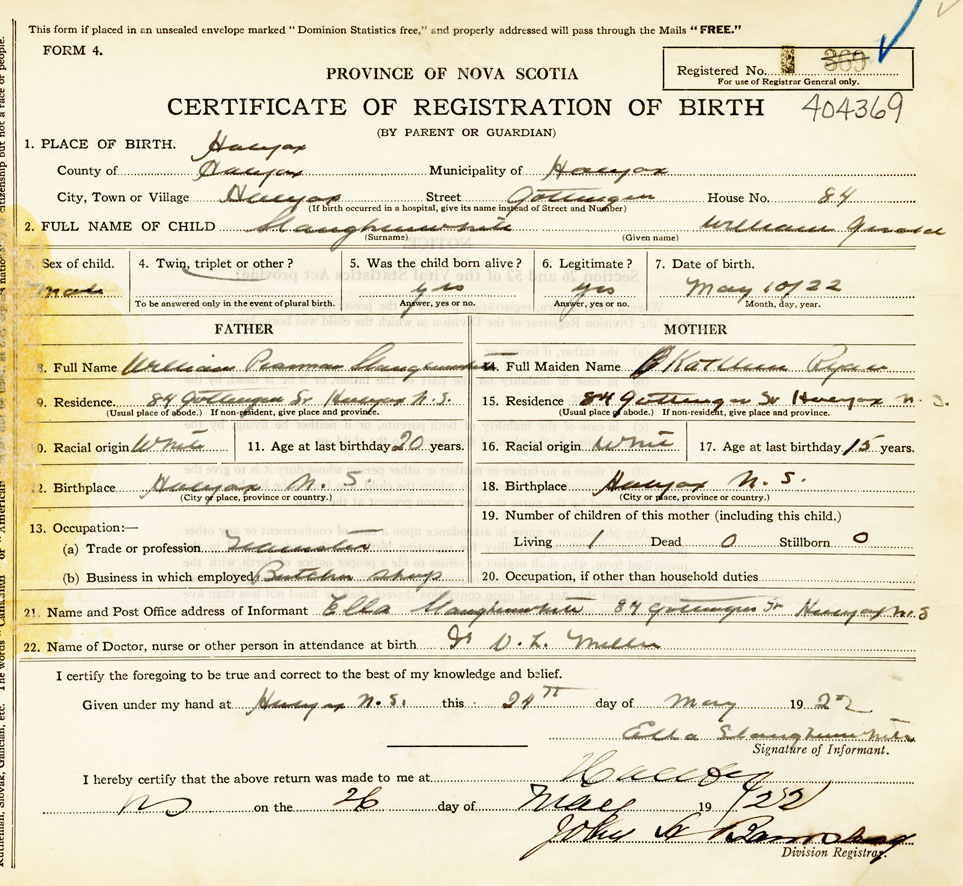 This form if placed in an unsealed envelope marked “Dominion Statistics free,” and properly addressed will pass through the Mails “FREE.”
FORM 4.
Registered No. 369
For use of Registrar General only.
PROVINCE OF NOVA SCOTIA
CERTIFICATE OF REGISTRATION OF BIRTH 404369
(BY PARENT OR GUARDIAN)
1. PLACE OF BIRTH. Halifax
County of Halifax Municipality of Halifax
City, Town or Village Halifax Street Gottingen House No. 84
(If birth occurred in a hospital, give its name instead of Street and Number)
2. FULL NAME OF CHILD Slaughenwhite William Gerald
(Surname) (Given name)
Sex of child. 4. Twin, triplet or other? 5. Was the child born alive? 6. Legitimate? 7. Date of birth.
male yes yes May 10/22
To be answered only in the event of plural birth. Answer, yes or no. Answer, yes or no. Month, day, year.
FATHER MOTHER
8. Full Name William Slaughenwhite 14. Full Maiden Name Kathleen Ryan
9. Residence 84 Gottingen St Halifax N.S. 15. Residence 84 Gottingen St Halifax N.S.
(Usual place of abode.) If non-resident, give place and province. (Usual place of abode.) If non-resident, give place and province.
0. Racial origin White 11. Age at last birthday 20 years. 16. Racial origin White 17. Age at last birthday 15 years.
12. Birthplace Halifax N.S. 18. Birthplace Halifax N.S.
(City or place, province or country.) (City or place, province or country.)
13. Occupation:— 19. Number of children of this mother (including this child.)
(a) Trade or profession Teamster Living 1 Dead 0 Stillborn 0
(b) Business in which employed Butcher shop 20. Occupation, if other than household duties
21. Name and Post Office address of Informant Ella Slaughenwhite 84 Gottingen St Halifax N.S
22. Name of Doctor, nurse or other person in attendance at birth Dr Miller
I certify the foregoing to be true and correct to the best of my knowledge and belief.
Given under my hand at Halifax N.S. this 24th day of May 1922
Ella Slaughenwhite
Signature of Informant.
I hereby certify that the above return was made to me at Halifax
NS on the 26 day of May 19 1922
John A
Division Registrar.